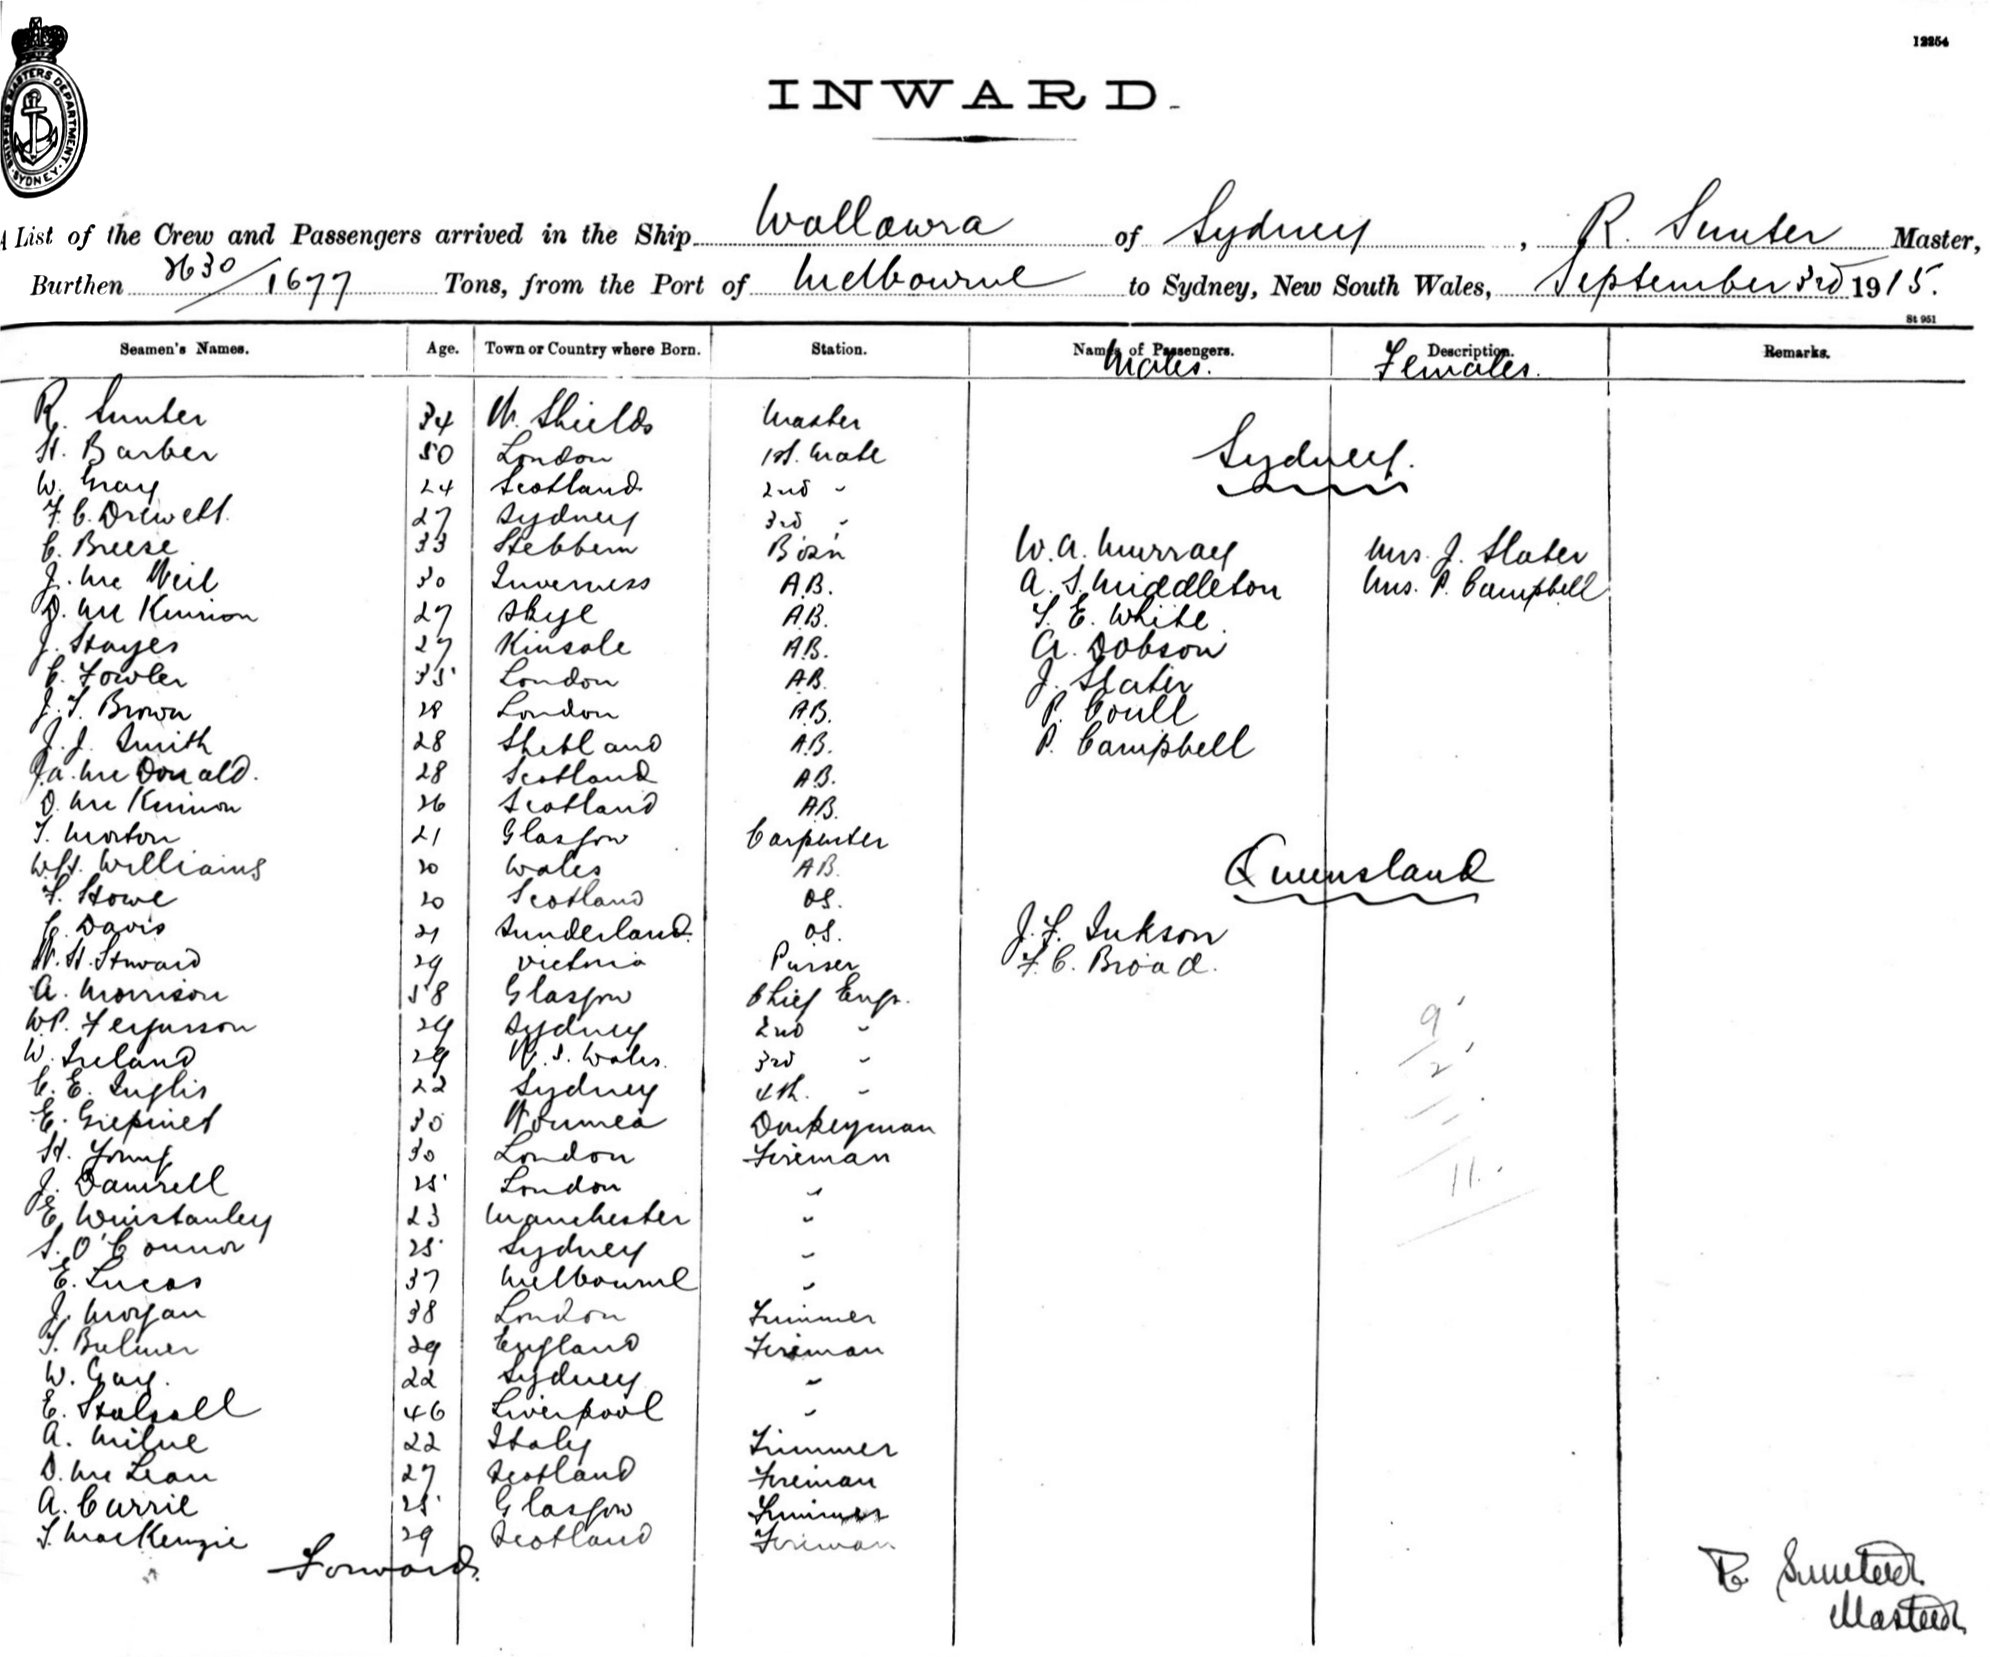 12254
SHIPPING MASTERS DEPARTMENT. SYDNEY
INWARD.
A List of the Crew and Passengers arrived in the Ship Wollowra of Sydney, R. Sunter Master,
Burthen 2630/1677 Tons, from the Port of Melbourne to Sydney, New South Wales, September 3rd 1915.
St 951
Seamen's Names. Age. Town or Country where Born. Station. Names of Passengers. Description. Remarks.
Males. Females.
R. Sunter 34 N. Shields Master
H. Barber 50 London 1st. Mate Sydney.
W. Gray 24 Scotland 2nd "
F. C. Drewett. 27 Sydney 3rd "
C. Breese 33 Bos'n W. A. Murray Mrs. J. Slater
J. Mc Neil 30 Inverness A.B. A. S. Middleton Mrs. P. Campbell
D. Mc Kinnon 27 Skye A.B. T. E. White
J. Hayes 27 Kinsale A.B. A. Dobson
C. Fowler 35 London A.B. J. Slater
J. T. Brown 28 London A.B. P. Coull
J. J. Smith 28 Shetland A.B. P. Campbell
J. A. Mc Donald. 28 Scotland A.B.
D. Mc Kinnon 26 Scotland A.B.
T. Morton 21 Glasgow Carpenter
W. H. Williams 20 Wales A.B. Queensland
F. Howe 20 Scotland O.S.
C. Davis 21 Sunderland. O.S. J. F. Inkson
N. H. Steward 29 Victoria Purser F. C. Broad.
A. Morrison 58 Glasgow Chief Engr.
W. P. Fergusson 29 Sydney 2nd " 9
W. Ireland 29 N. S. Wales. 3rd " 2
C. E. Inglis 22 Sydney 4th. "
E. 30 Noumea Donkeyman
H. Young 30 London Fireman
J. Damrell 25 London " 11.
E. Winstanley 23 Manchester "
S. O'Connor 25 Sydney "
E. Lucas 37 Melbourne "
J. Morgan 38 London Trimmer
T. Bulmer 29 England Fireman
W. Gay. 22 Sydney "
E. Halsall 46 Liverpool "
A. Milne 22 Italy Trimmer
D. Mc Lean 27 Scotland Fireman
A. Currie 25 Glasgow Trimmer
T. MacKenzie 29 Scotland Fireman
Forward.
R. Sunter
Master